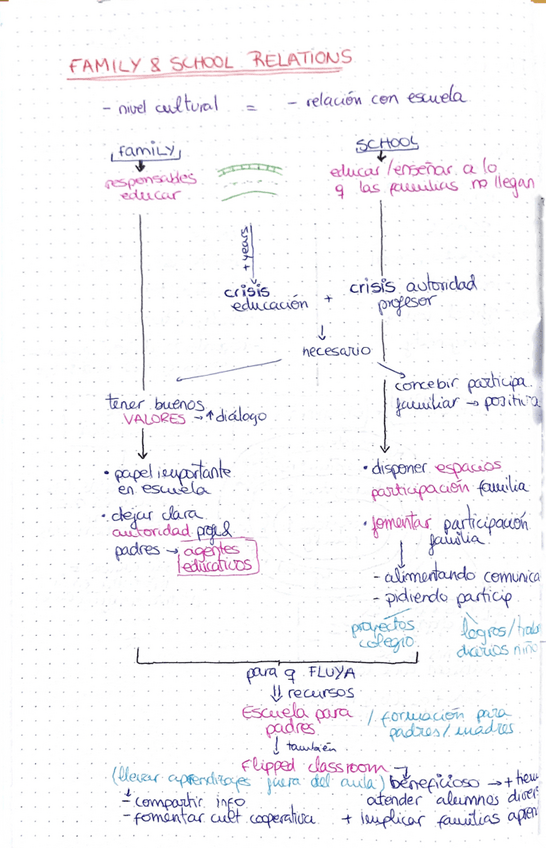 FAMILY & SCHOOL RELATIONS
- nivel cultural = - relación con escuela
family
SCHOOL
responsables
educar
educar/enseñar a lo
q las familias no llegan
+ years
crisis
educación
+
crisis autoridad
profesor
necesario
tener buenos
VALORES → ↑ diálogo
concebir participa
familiar → positiva
• papel importante
en escuela
• dejar clara
autoridad prof &
padres → agentes
educativos
• disponer espacios
participación familia
• fomentar participación
familia
- alimentando comunica
- pidiendo particip
proyectos
colegio
logros/
diarios niño
para q FLUYA
⇓ recursos
Escuela para
padres
/ formación para
padres/madres
↓ también
Flipped classroom
(llevar aprendizajes fuera del aula) beneficioso → +
- compartir info
- fomentar cult cooperativa
atender alumnos diver
+ implicar familias apren